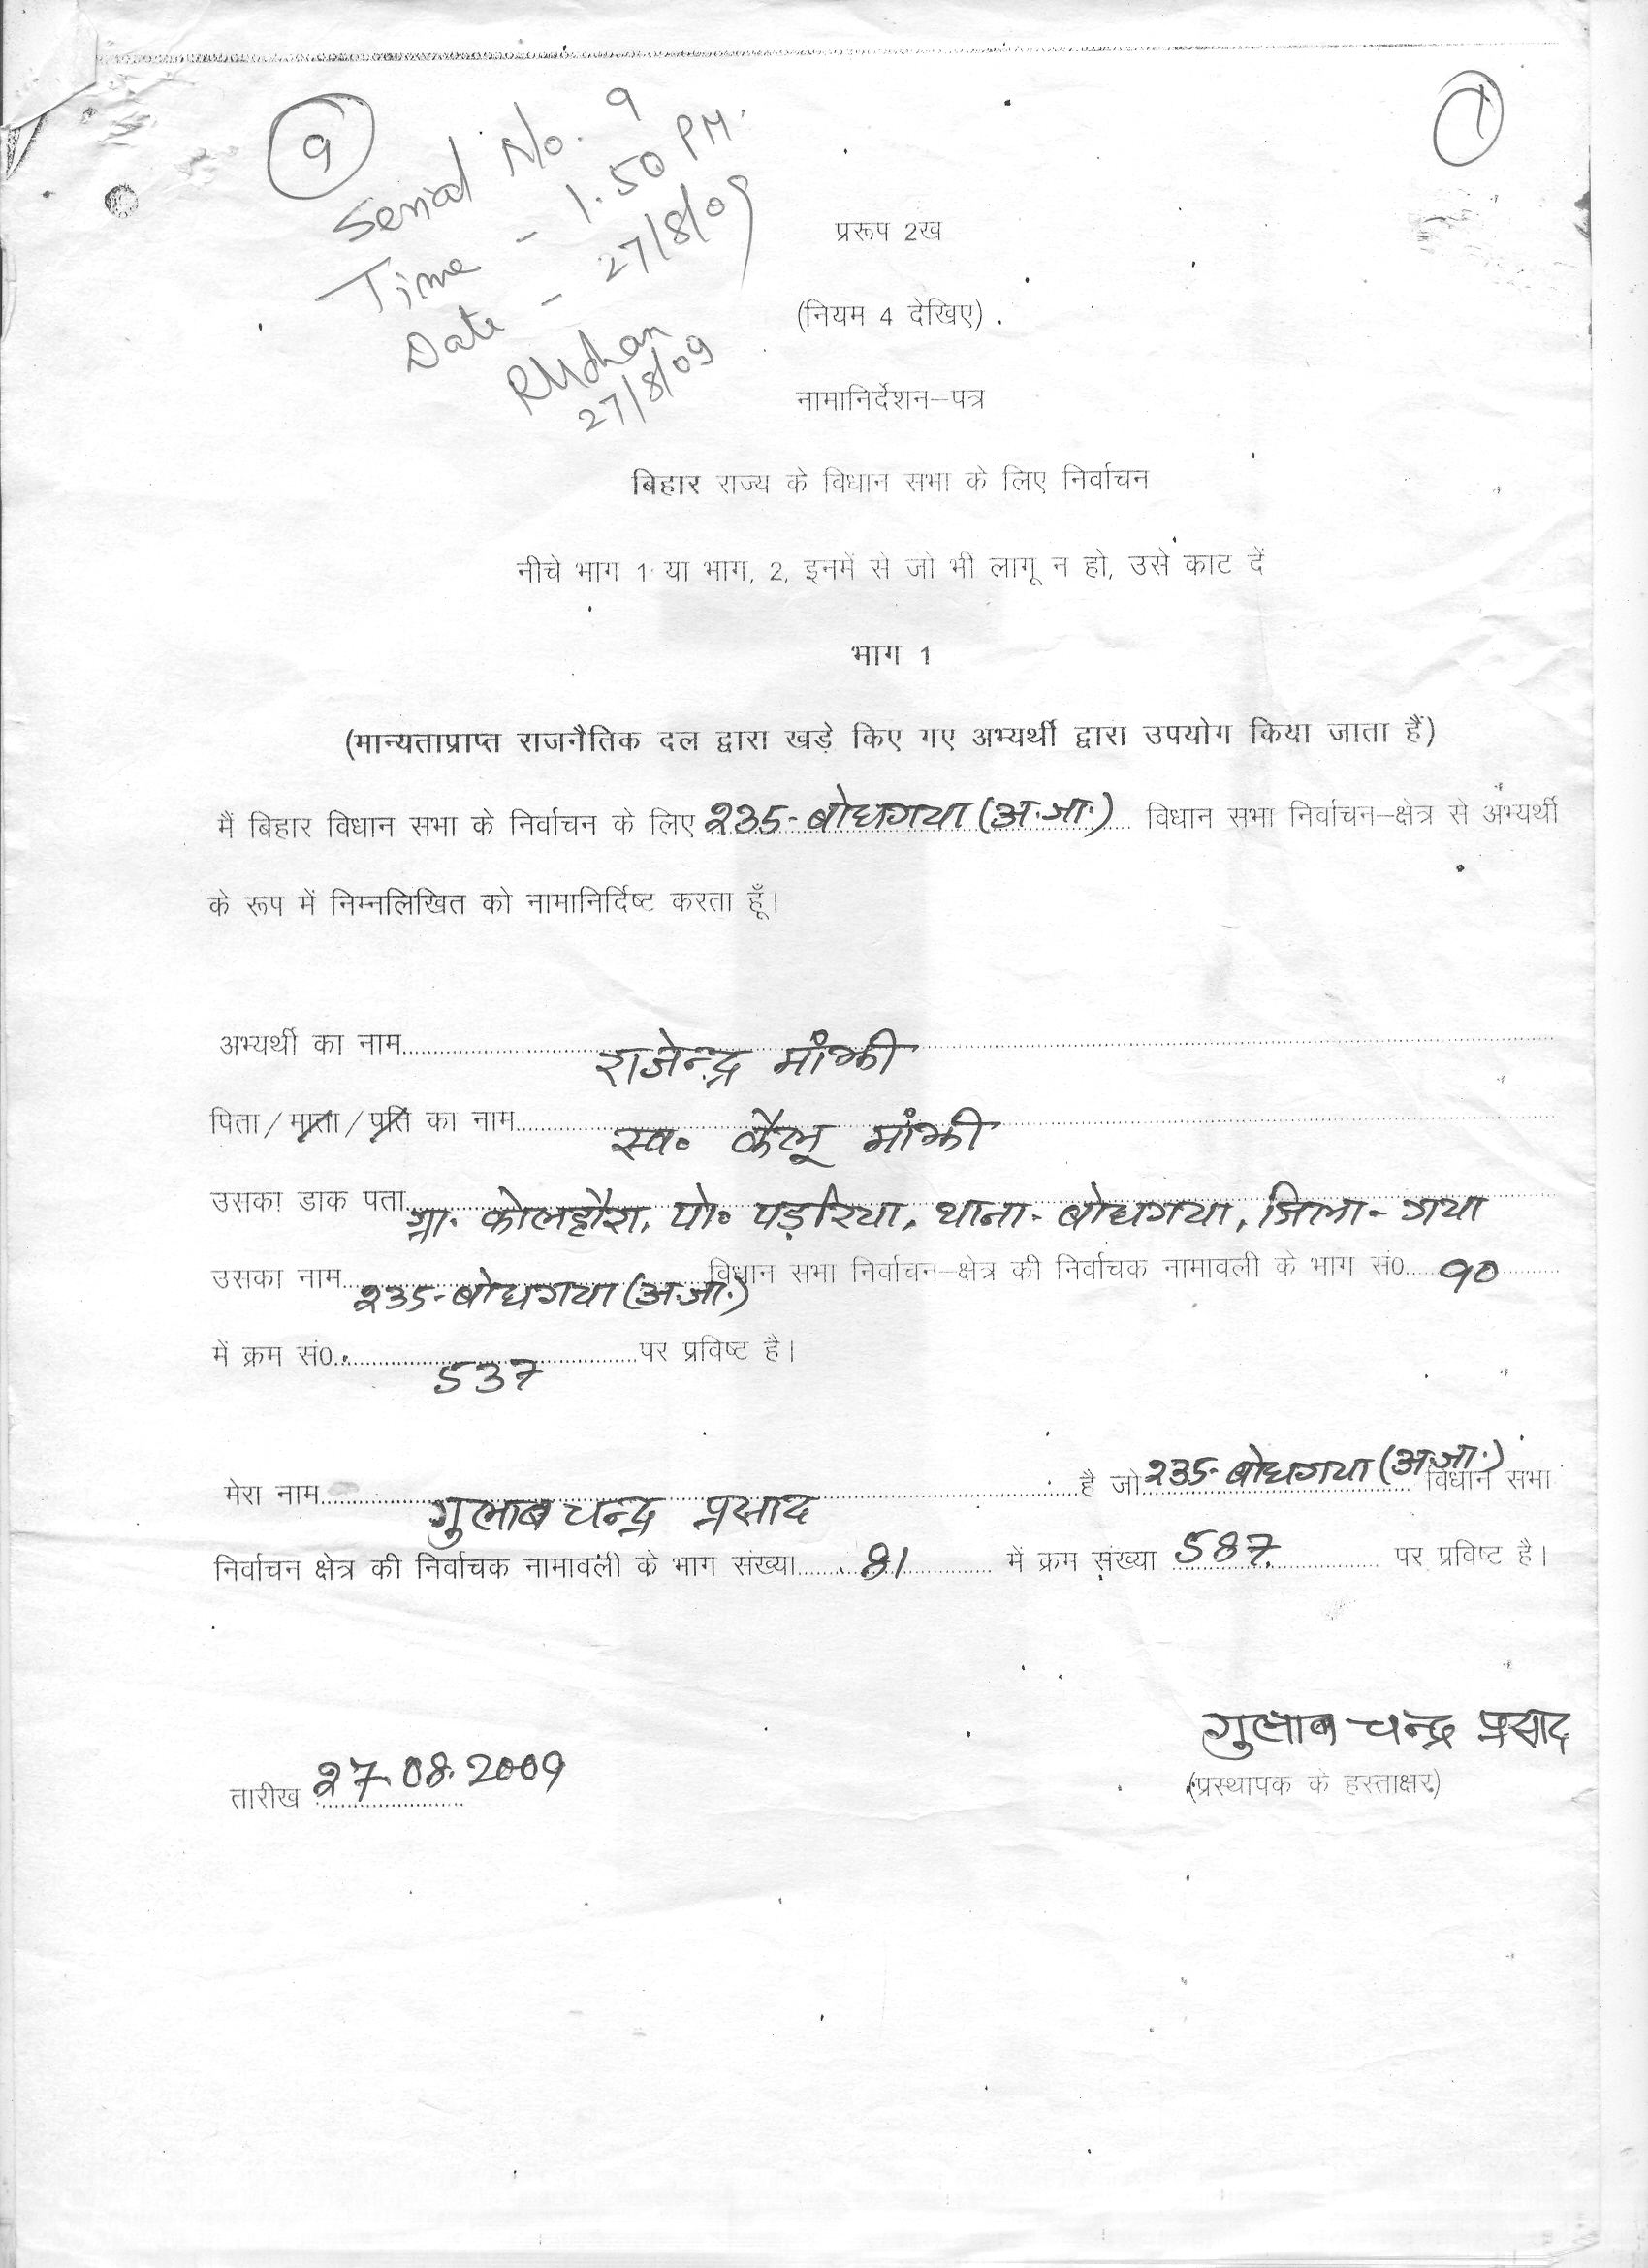 9
Serial No. 9
Time - 1.50 PM.
Date - 27/8/09
RMohan
27/8/09
1
प्ररूप 2ख
(नियम 4 देखिए)
नामानिर्देशन–पत्र
बिहार राज्य के विधान सभा के लिए निर्वाचन
नीचे भाग 1 या भाग, 2, इनमें से जो भी लागू न हो, उसे काट दें
भाग 1
(मान्यताप्राप्त राजनैतिक दल द्वारा खड़े किए गए अभ्यर्थी द्वारा उपयोग किया जाता हैं)
मैं बिहार विधान सभा के निर्वाचन के लिए 235-बोधगया (अ.जा.) विधान सभा निर्वाचन–क्षेत्र से अभ्यर्थी
के रूप में निम्नलिखित को नामानिर्दिष्ट करता हूँ।
अभ्यर्थी का नाम राजेन्द्र मांझी
पिता / माता / पति का नाम स्व० कैलू मांझी
उसका डाक पता ग्रा. कोलहौरा, पो० पड़रिया, थाना- बोधगया, जिला- गया
उसका नाम 235-बोधगया (अ.जा.) विधान सभा निर्वाचन–क्षेत्र की निर्वाचक नामावली के भाग सं0 90
में क्रम सं0 537 पर प्रविष्ट है।
मेरा नाम गुलाब चन्द्र प्रसाद है जो 235-बोधगया (अ.जा.) विधान सभा
निर्वाचन क्षेत्र की निर्वाचक नामावली के भाग संख्या 81 में क्रम संख्या 587 पर प्रविष्ट है।
गुलाब चन्द्र प्रसाद
तारीख 27.08.2009
(प्रस्थापक के हस्ताक्षर)